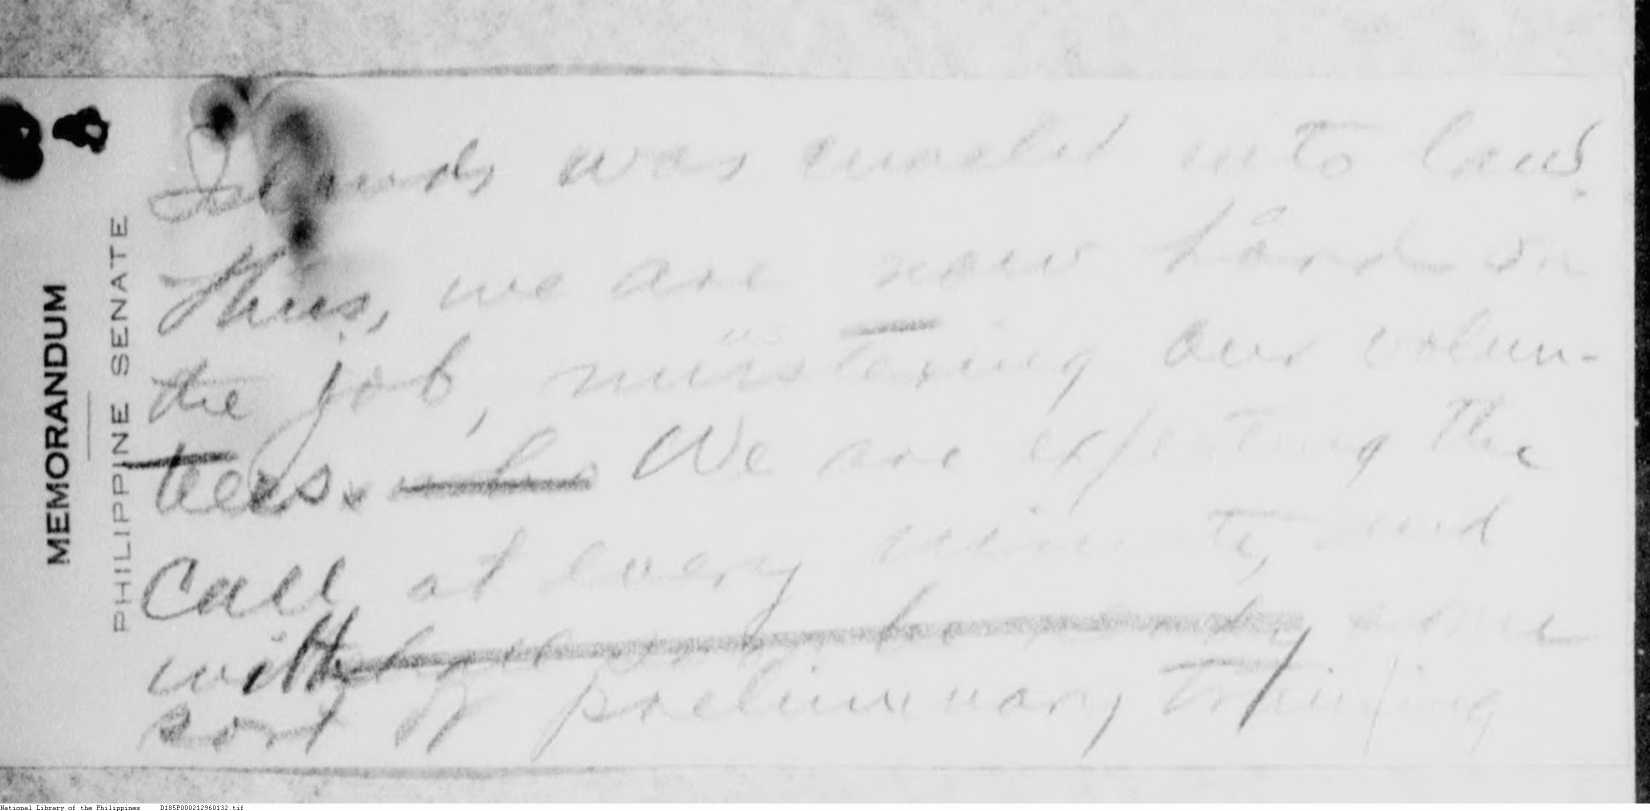 MEMORANDUM
PHILIPPINE SENATE
Islands was enacted into law.
Thus, we are now hard on
the job, mustering our volun-
teers. who We are expecting the
call at every minute, and
with some
sort of preliminary training
National Library of the Philippines D185P000212960132.tif